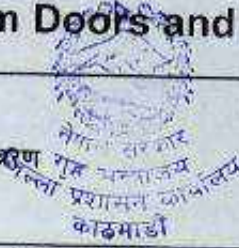 m Doors and
नेपाल सरकार
रण गृह मन्त्रालय
जिल्ला प्रशासन कार्यालय
काठमाडौं